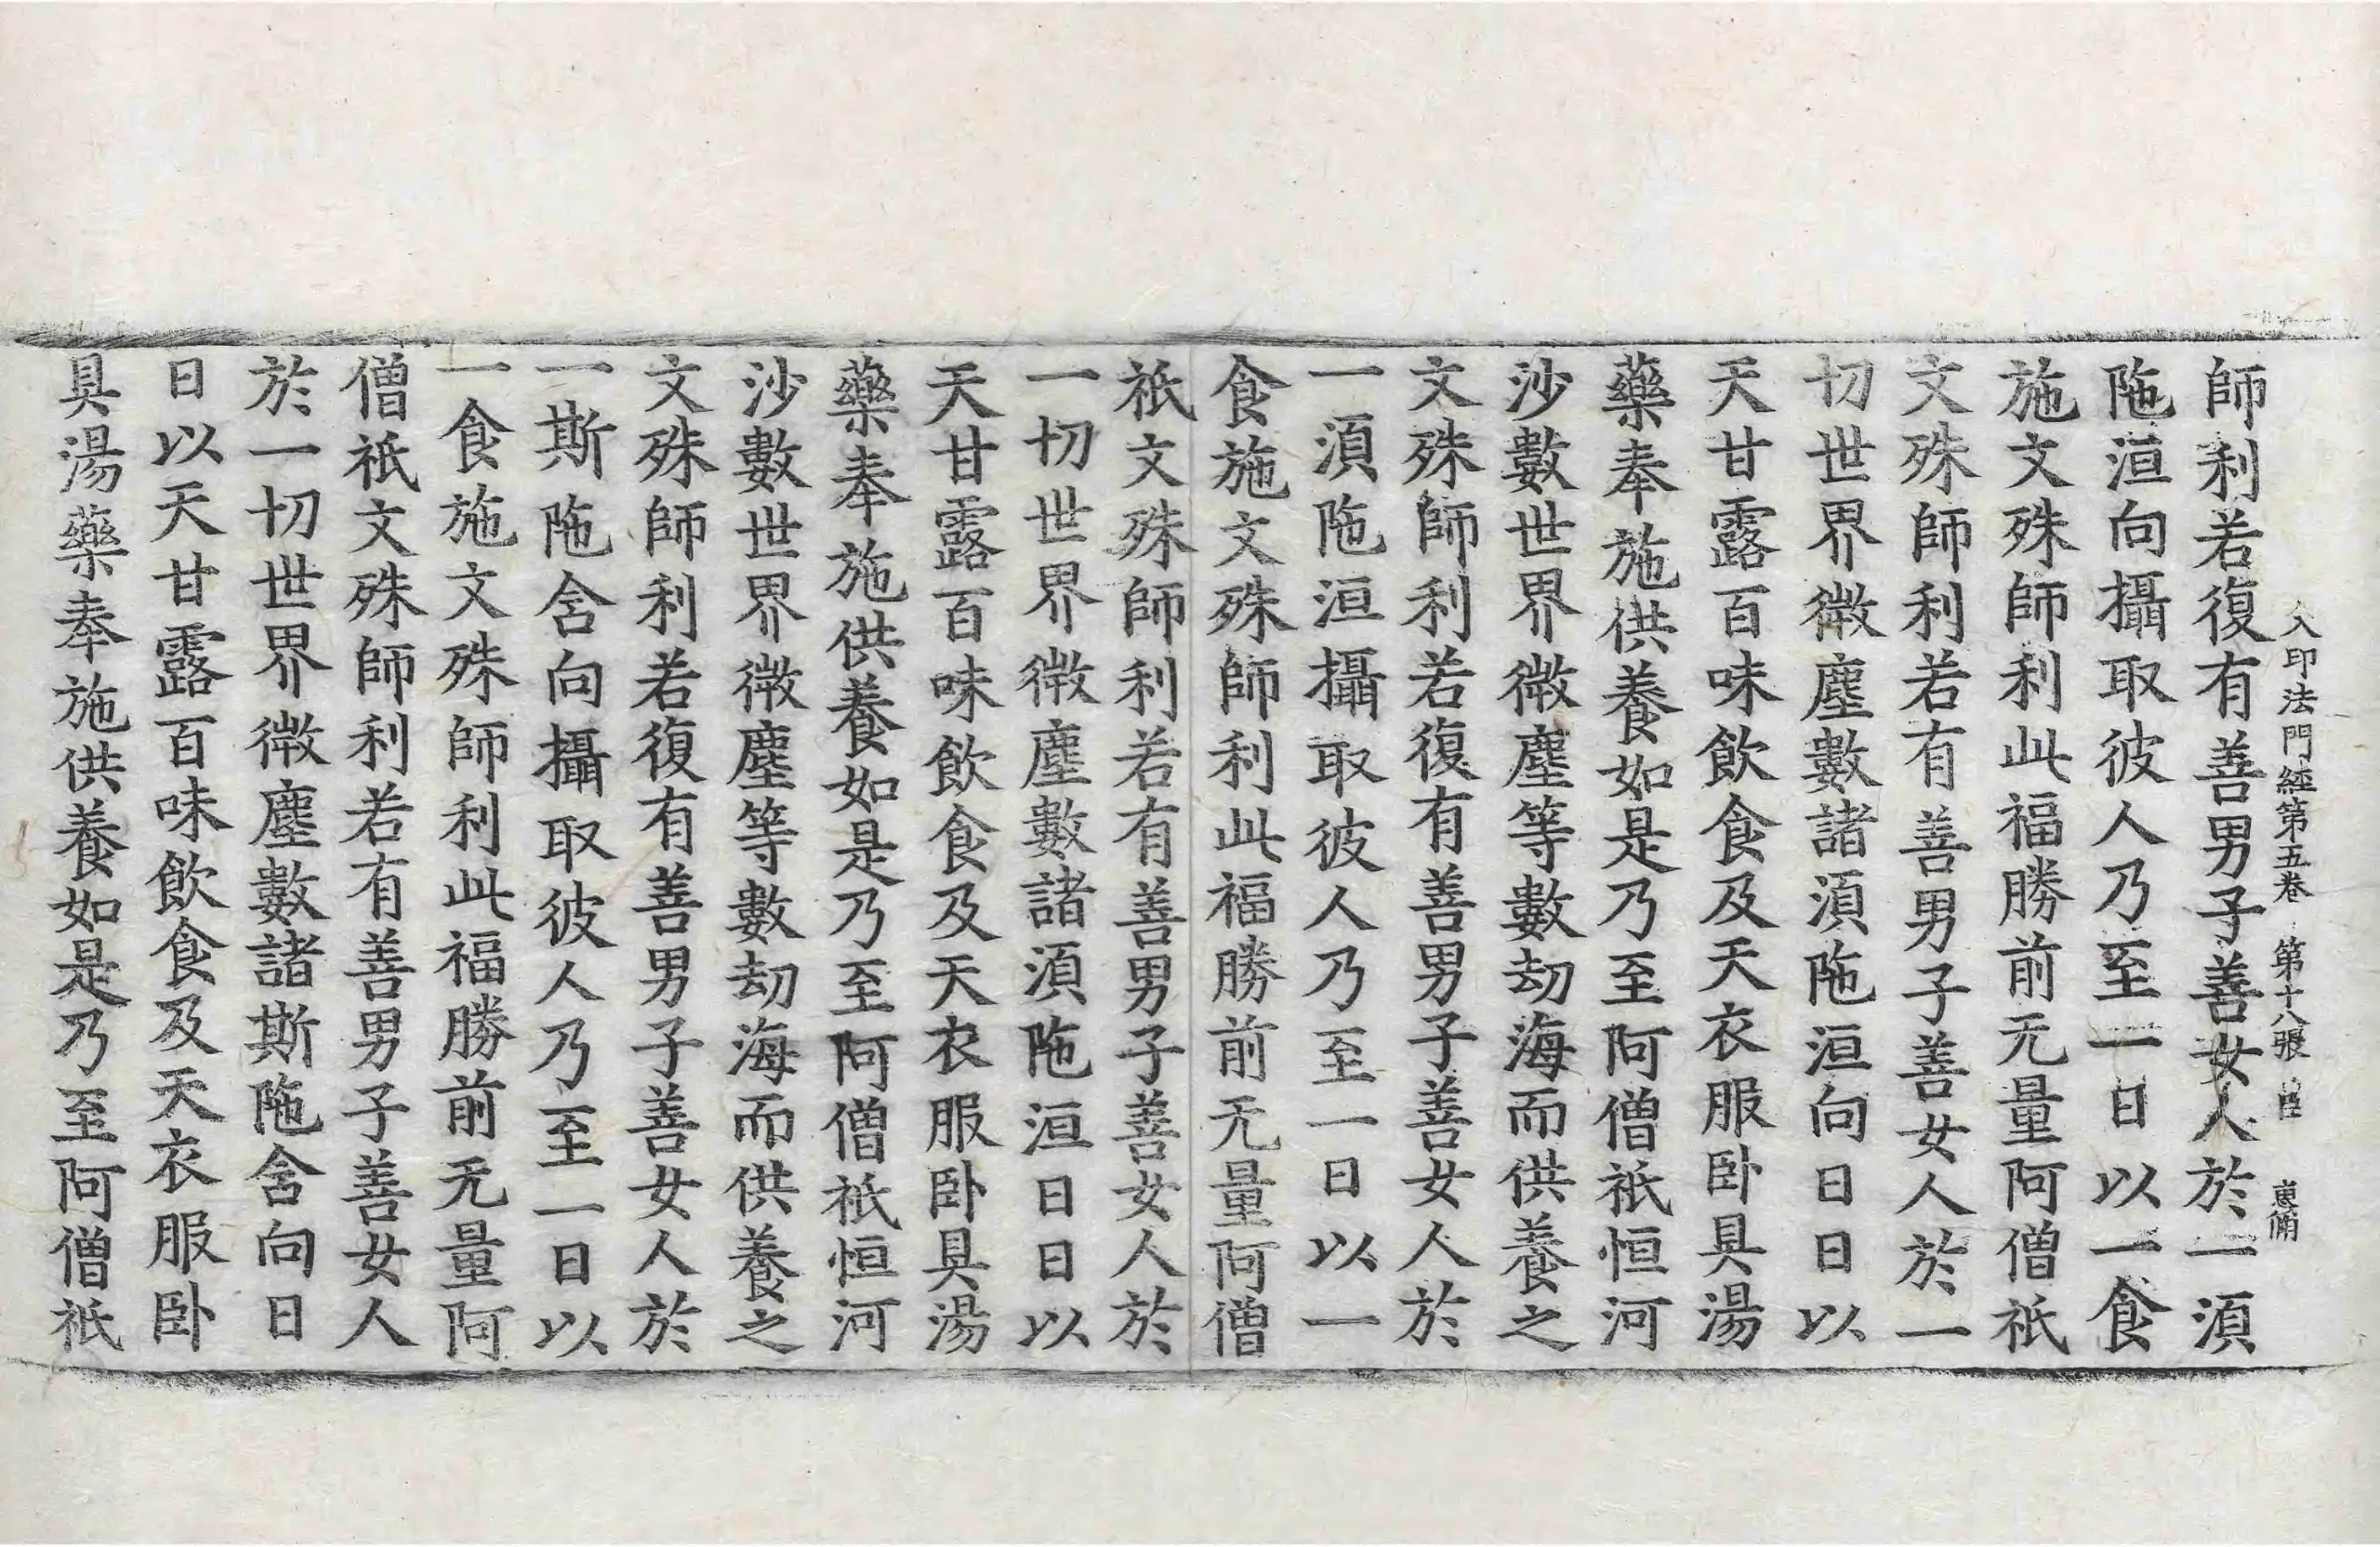 入印法門經第五卷 第十八張
師利若復有善男子善女人於一湏
陁洹向攝取彼人乃至一日以一食
施文殊師利此福勝前无量阿僧祇
文殊師利若有善男子善女人於一
切世界微塵數諸湏陁洹向日日以
天甘露百味飲食及天衣服卧具湯
藥奉施供養如是乃至阿僧祇恒河
沙數世界微塵等數劫海而供養之
文殊師利若復有善男子善女人於
一湏陁洹攝取彼人乃至一日以一
食施文殊師利此福勝前无量阿僧
祇文殊師利若有善男子善女人於
一切世界微塵數諸湏陁洹日日以
天甘露百味飲食及天衣服卧具湯
藥奉施供養如是乃至阿僧祇恒河
沙數世界微塵等數劫海而供養之
文殊師利若復有善男子善女人於
一斯陁含向攝取彼人乃至一日以
一食施文殊師利此福勝前无量阿
僧祇文殊師利若有善男子善女人
於一切世界微塵數諸斯陁含向日
日以天甘露百味飲食及天衣服卧
具湯藥奉施供養如是乃至阿僧祇